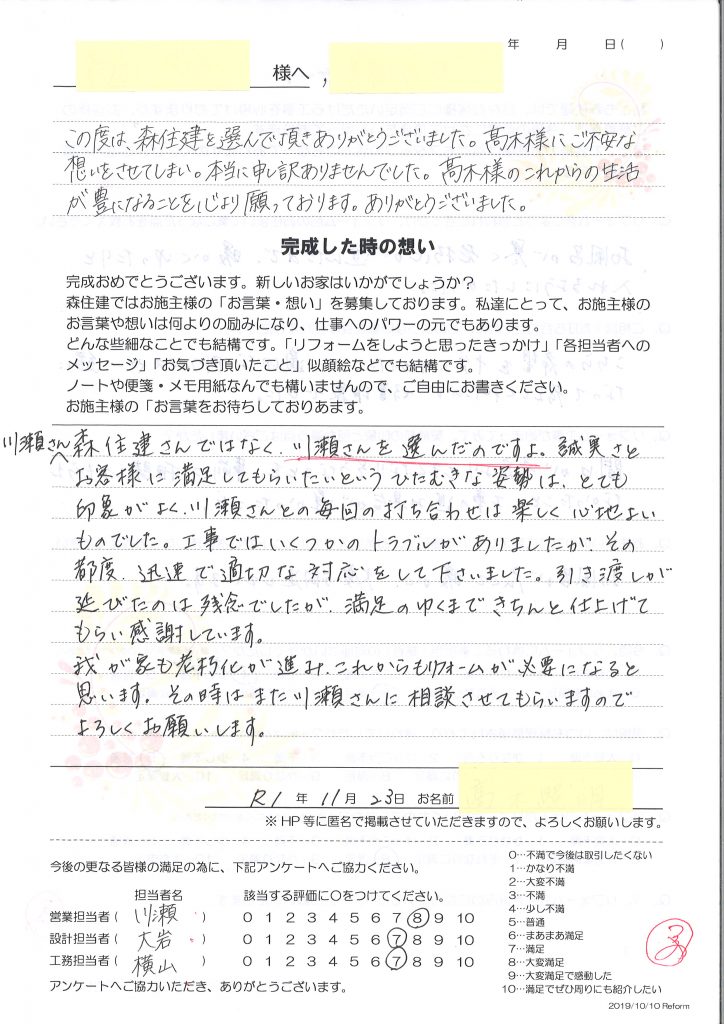 年 月 日( )
様へ ,
この度は、森住建を選んで頂きありがとうございました。髙木様にご不安な
想いをさせてしまい。本当に申し訳ありませんでした。髙木様のこれからの生活
が豊になることを心より願っております。ありがとうございました。
完成した時の想い
完成おめでとうございます。新しいお家はいかがでしょうか?
森住建ではお施主様の「お言葉・想い」を募集しております。私達にとって、お施主様の
お言葉や想いは何よりの励みになり、仕事へのパワーの元でもあります。
どんな些細なことでも結構です。「リフォームをしようと思ったきっかけ」「各担当者への
メッセージ」「お気づき頂いたこと」似顔絵などでも結構です。
ノートや便箋・メモ用紙なんでも構いませんので、ご自由にお書きください。
お施主様の「お言葉をお待ちしておりあます。
川瀬さんへ
森住建さんではなく、川瀬さんを選んだのですよ。誠実さと
お客様に満足してもらいたいというひたむきな姿勢は、とても
印象がよく、川瀬さんとの毎回の打ち合わせは楽しく心地よい
ものでした。工事ではいくつかのトラブルがありましたが、その
都度、迅速で適切な対応をして下さいました。引き渡しが
延びたのは残念でしたが、満足のゆくまできちんと仕上げて
もらい感謝しています。
我が家も老朽化が進み、これからもリフォームが必要になると
思います。その時はまた川瀬さんに相談させてもらいますので
よろしくお願いします。
R1 年 11月 23日 お名前
※HP等に匿名で掲載させていただきますので、よろしくお願いします。
今後の更なる皆様の満足の為に、下記アンケートへご協力ください。
担当者名 該当する評価に○をつけてください。
営業担当者( 川瀬 ) 0 1 2 3 4 5 6 7 8 9 10
設計担当者( 大岩 ) 0 1 2 3 4 5 6 7 8 9 10
工務担当者( 横山 ) 0 1 2 3 4 5 6 7 8 9 10
アンケートへご協力いただき、ありがとうございます。
0…不満で今後は取引したくない
1…かなり不満
2…大変不満
3…不満
4…少し不満
5…普通
6…まあまあ満足
7…満足
8…大変満足
9…大変満足で感動した
10…満足でぜひ周りにも紹介したい
2019/10/10 Reform